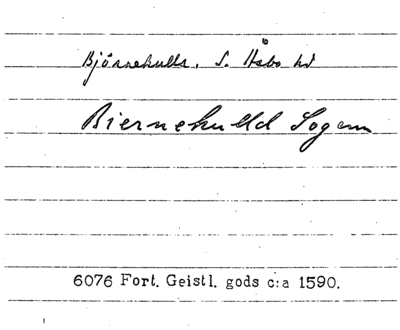 Bjärnehulls, S. Åsbo hd
Biernehulld Sogenn
6076 Fort. Geistl. gods c:a 1590.